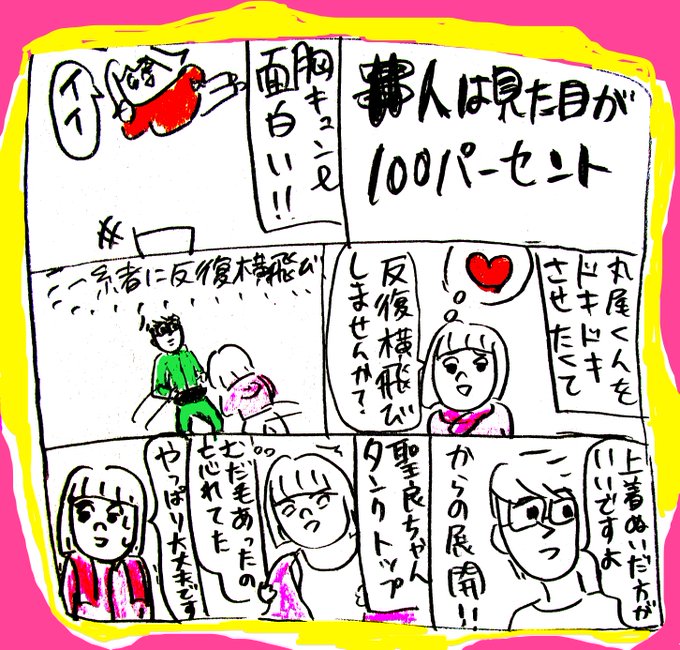 人は見た目が
100パーセント
胸キュンで
面白い!!
イイ
丸尾くんを
ドキドキ
させたくて
反復横飛び
しませんか?
一緒に反復横飛び
上着ぬいだ方が
いいですよ
からの展開!!
聖良ちゃん
タンクトップ
むだ毛あったの
忘れてた
やっぱり大丈夫です